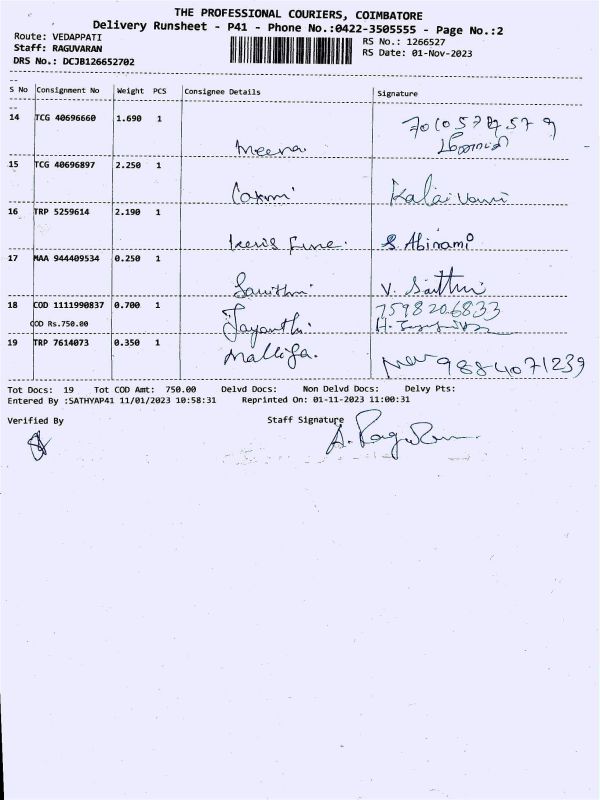 THE PROFESSIONAL COURIERS, COIMBATORE
Delivery Runsheet - P41 - Phone No.:0422-3505555 - Page No.:2
Route: VEDAPPATI
RS No.: 1266527
Staff: RAGUVARAN
RS Date: 01-Nov-2023
DRS No.: DCJB126652702
S No Consignment No Weight PCS Consignee Details Signature
14 TCG 40696660 1.690 1
Meena
15 TCG 40696897 2.250 1
Laxmi Kalaivani
16 TRP 5259614 2.190 1
S. Abinami
17 MAA 944409534 0.250 1
V.
18 COD 1111990837 0.700 1 7598206833
COD Rs.750.00 Jayanthi.
19 TRP 7614073 0.350 1 Malliga. 9884071239
Tot Docs: 19 Tot COD Amt: 750.00 Delvd Docs: Non Delvd Docs: Delvy Pts:
Entered By :SATHYAP41 11/01/2023 10:58:31 Reprinted On: 01-11-2023 11:00:31
Verified By Staff Signature